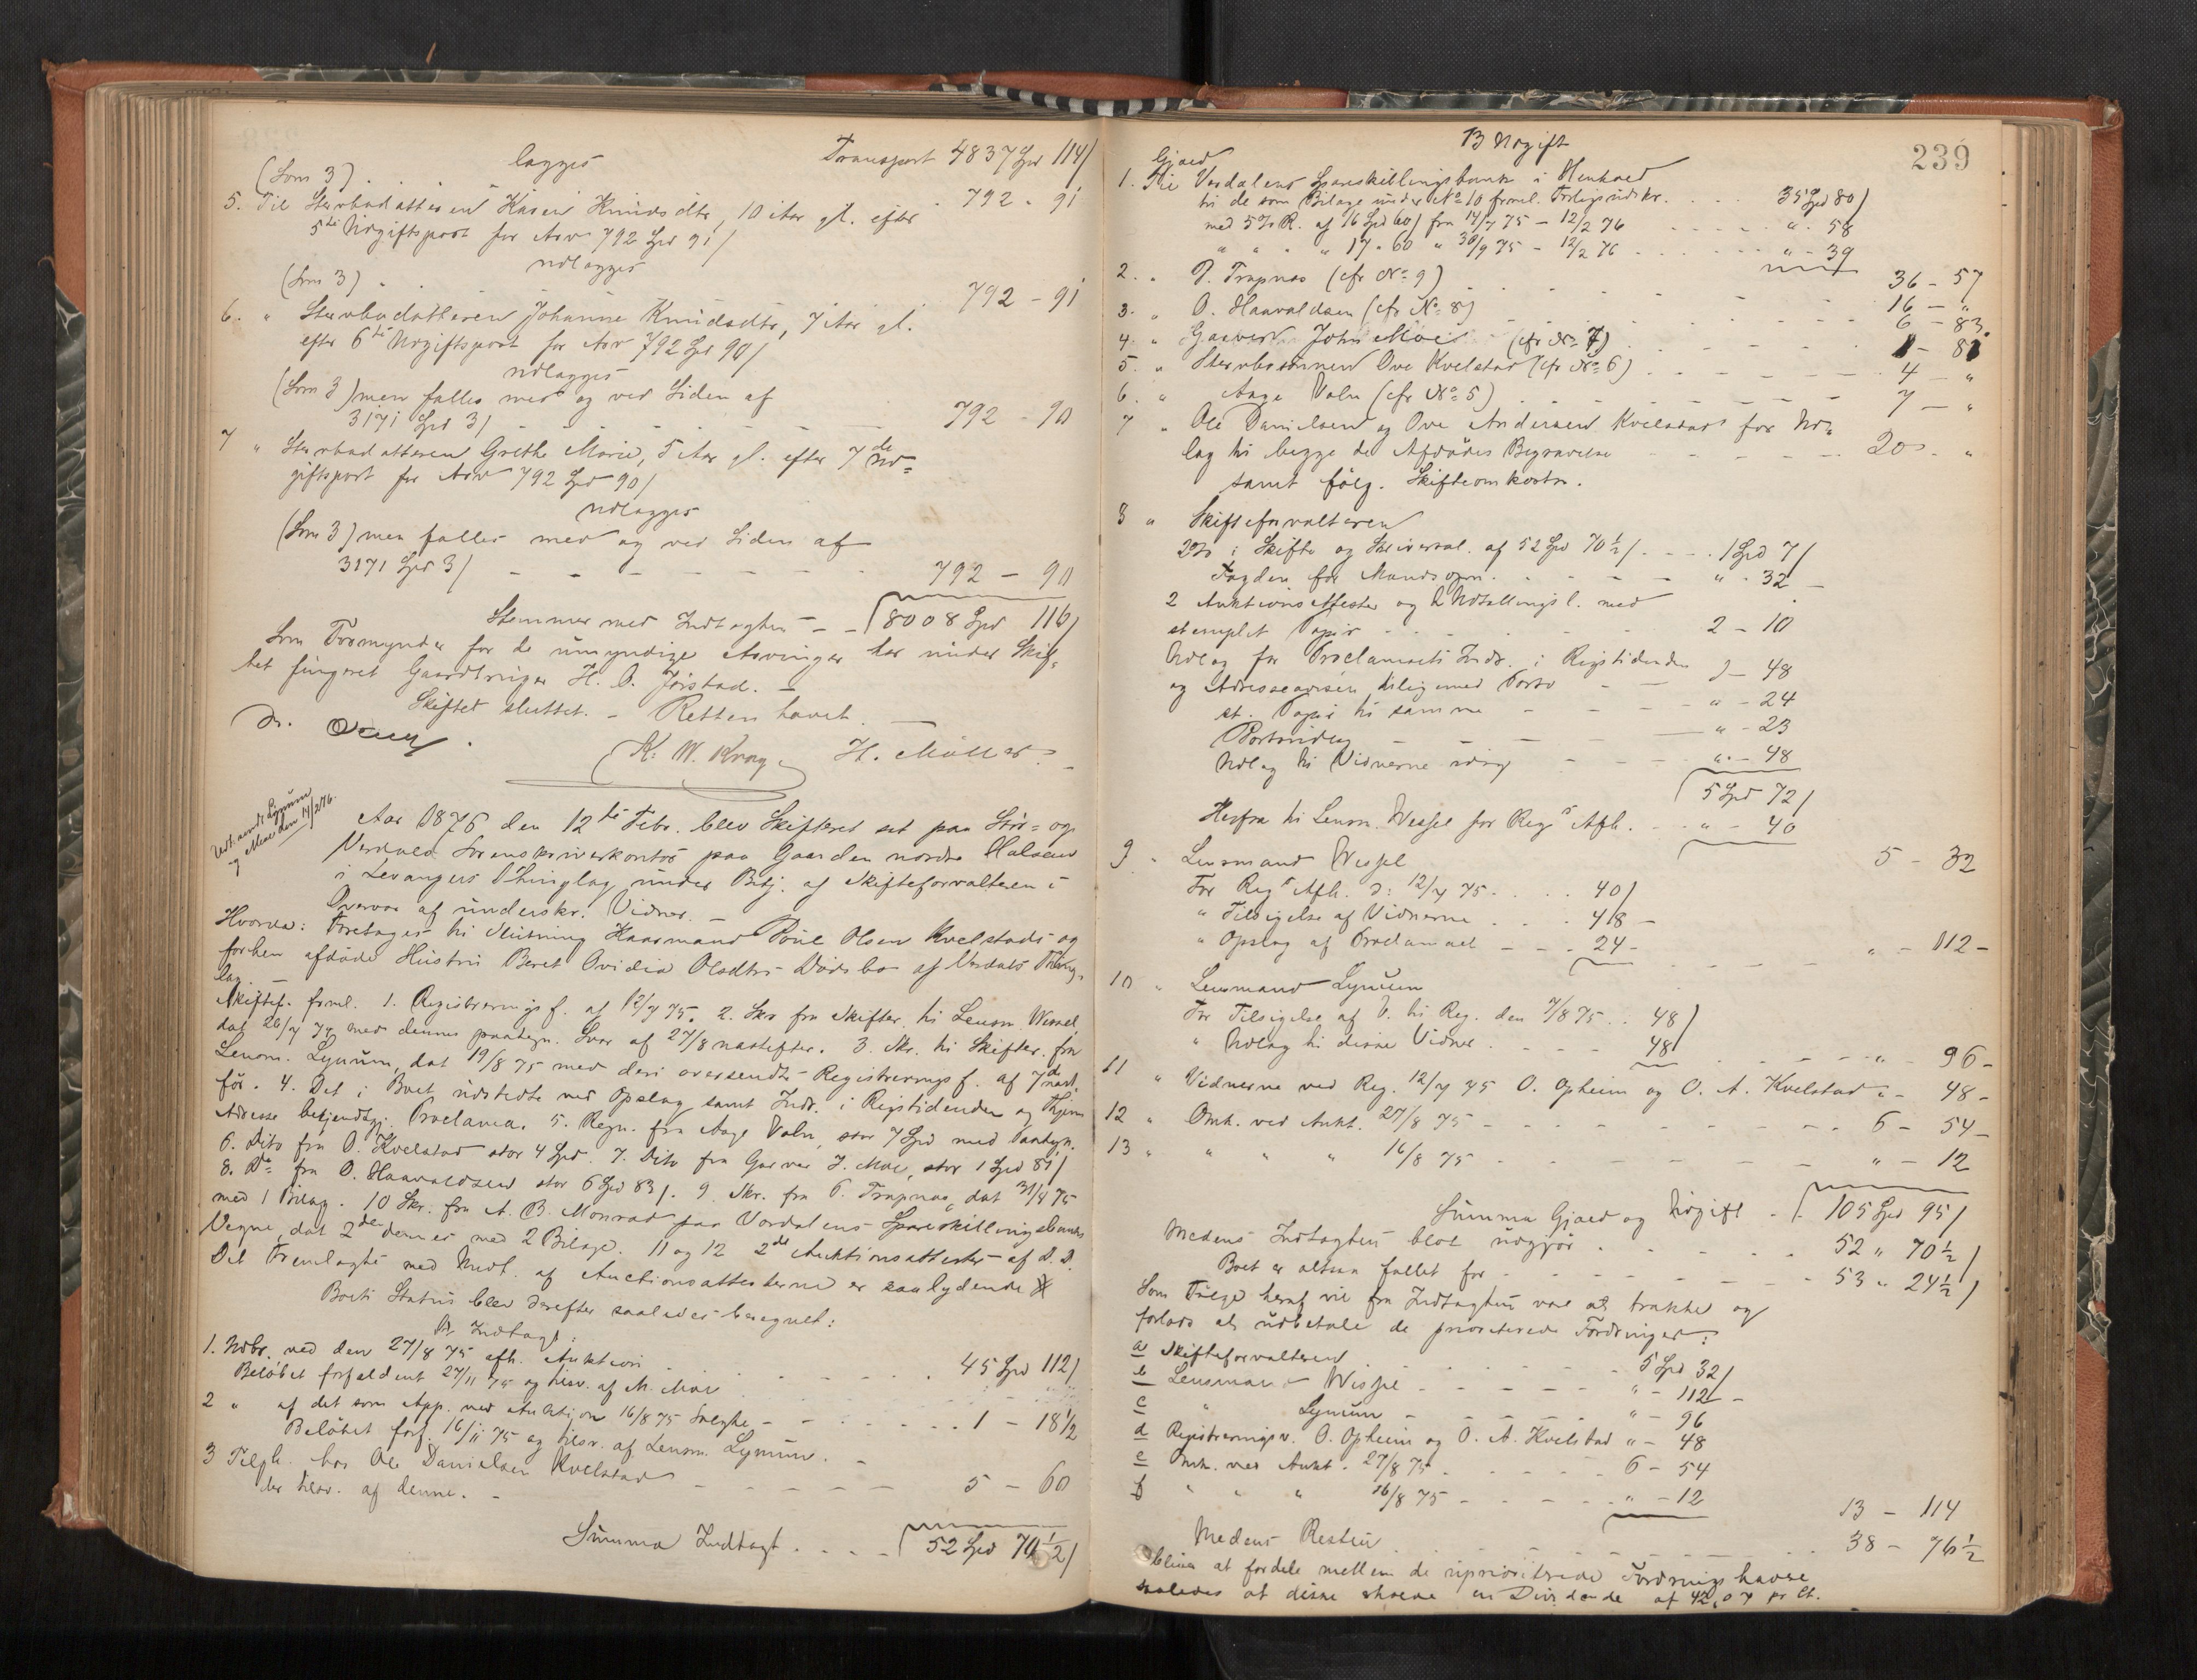 lægges Transport 4837 Spd 114/
(Som 3) . . 792 - 91
5. Til Sterbodatteren Karen Knudsdtr, 10 Aar gl. efter
5te Udgiftspost for Arv 792 Spd 91/
udlægges
(Som 3) . . 792 - 91
6. " Sterbodatteren Johanne Knudsdtr, 7 Aar gl.
efter 6te Udgiftspost for Arv 792 Spd 90/
udlægges
(Som 3) men falles med og ved Siden af
3171 Spd 3/ - - - - 792 - 90
7 " Sterbodatteren Grethe Marie, 5 Aar gl. efter 7de Ud=
giftspost for Arv 792 Spd 90/
udlægges
(Som 3) men falles med og ved Siden af
3171 Spd 3/ - - - - 792 - 90
Stemmer med Indtægten - - 8008 Spd 116/
Som Formynder for de umyndige Arvinger har under Skif=
tet fungeret Gaardbruger H. O. Jørstad. -
Skiftet sluttet. - Retten hævet. -
K. W. Krog H. Møller
Aar 1876 den 12te Febr. blev Skifteret sat paa Stør= og
Verdals Sorenskriverkontor paa Gaarden nordre Halsan
i Levangers Thinglag under Betj. af Skifteforvalteren i
Overvær af underskr. Vidner. -
Hvorda: Foretages til Slutning Huusmand Poul Olsen Kvelstads og
forhen afdøde Hustru Beret Ovidia Olsdtrs Dødsbo af Verdals Thing=
lag. -
Skiftef. freml. 1. Registreringsf. af 12/7 75. 2. Skr fra Skifter. til Lensm. Wessel,
dat 26/7 75 med dennes paategn. Svar af 27/8 næstefter. 3. Skr. til Skifter. fra
Lensm. Lynum, dat 19/8 75 med deri oversendte Registreringsf. af 7de næst
før. 4. Det i Boet udstedte ved Opslag samt Indr. i Rigstidenden og Thjems
Adresse bekjendtgj. Proclama. 5. Regn. fra Aage Valn, stor 7 Spd med Paategn.
6. Dito fra O. Kvelstad stor 4 Spd. 7. Dito fra Garver J. Moe, stor 1 Spd 81/
8. Do fra O. Haavaldsen stor 6 Spd 83/. 9. Skr. fra P. Trapnæs, dat 31/7 75
med 1 Bilag. 10 Skr. fra A. B. Monrad paa Værdalens Spareskillingsbanks
Vegne, dat 2den dennes med 2 Bilage. 11 og 12 2de Auktionsattester af D. D.
Det Fremlagte med Undt. af Auctionsattesterne er saalydende
Boets Status blev derefter saaledes beregnet:
A Indtægt:
1. Udbr. ved den 27/8 75 afh. Auktion . . . 45 Spd 112/
Beløbet forfaldent 27/11 75 og tilsv. af M. Moe
2 " af det som App. ved Auktion 16/8 75 Solgte - - - 1 - 18 1/2
Beløbet forf. 16/11 75 og tilsv. af Lensm. Lynum. -
3 Tilgh. hos Ole Danielsen Kvelstad - - - - 5 - 60
der tilsv. af denne. -
Summa Indtægt . . . - 52 Spd 70 1/2/
239
B Udgift
Gjæld
1. Til Værdalens Spareskillingsbank i Henhold
til de som Bilage under No 10 freml. Forligsudskr. . . . 35 Spd 80/
med 5% R. af 16 Spd 60/ fra 14/7 75 - 12/2 76 . . . " - 58
" " " " 17 - 60 " 30/9 75 - 12/2 76 . . . " - 39
36 - 57
2. " P. Trapnæs (cfr No 9) . . . 16 - "
3. " O. Haavaldsen (cfr No 8) . . . 6 - 83
4. " Garver John Moe (cfr No 7) . . . 1 - 81
5. " Sterbosønnen Ove Kvelstad (cfr No 6) . . . 4 - "
6. " Aage Valn (cfr No 5) . . . 7 - "
7 " Ole Danielsen og Ove Andersen Kvelstad for Ud=
lag til begge de Afdødes Begravelse - - - 20 - "
samt følg. Skifteomkostn.
8 " Skifteforvalteren
2% i Skifte og Skriversal. af 52 Spd 70 1/2/ . - - . 1 Spd 7/
Fogden for Mandsopn. - - - " - 32 -
2 Auktionsattester og 2 Udtællingsl. med
stemplet Papir . . . 2 - 10
Udlæg for Proclamaets Indr. i Rigstidenden
og Adresseavisen tilligemed Porto - - 1 - 48
st. Papir til samme - - - " - 24
Portoudlæg - - - " - 23
Udlæg til Vidnerne idag - - - " - 48
5 Spd 72/
Herfra til Lensm. Wessel for Regs Afh. - . " - 40
5 - 32
9 . Lensmand Wessel
For Regs Afh. d: 12/7 75 . . . 40/
" Tilsigelse af Vidnerne . . . 48 -
" Opslag af Proclamaet - - - 24 -
" - 112 -
10 " Lensmand Lynum
For Tilsigelse af V. til Reg. den 7/8 75 . . 48/
" Udlæg til disse Vidner . . . 48/
" - 96 -
11 " Vidnerne ved Reg. 12/7 75 O. Opheim og O. A. Kvelstad " - 48 -
12 " Omk. ved Aukt. 27/8 75 - - - - 6 - 54 -
13 " " " " 16/8 75 - - - - " - 12
Summa Gjæld og Udgift . 105 Spd 95/
Medens Indtægten blot udgjør . . . 52 " 70 1/2/
Boet er altsaa fallit for - - - - 53 " 24 1/2/
Som Følge heraf vil fra Indtægten være at trække og
forlods at udbetale de prioriterede Fordringer:
a Skifteforvalteren . . . 5 Spd 32/
b Lensmand Wessel - - - " - 112 -
c " Lynum - - - " - 96
d Registreringsv. O. Opheim og O. A. Kvelstad " - 48
e Omk. ved Aukt. 27/8 75 . . . 6 - 54
f " " " 16/8 75 - - - " - 12
13 - 114
Medens Resten . . . 38 - 76 1/2
bliver at fordele mellem de uprioriterede Fordringshavere
saaledes at disse erholde en Dividende af 42,07 pr Ct.